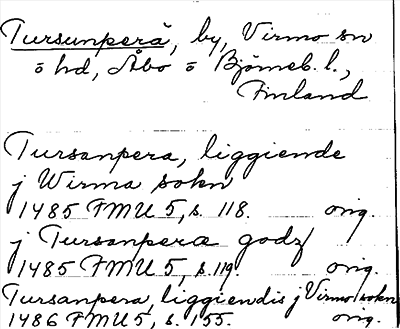 Tursunperä, by, Virmo sn
o hd, Åbo o Björneb. l.,
Finland
Tursanpera, liggiende
j Wirma sokn
1485 FMU 5, s. 118. orig.
j Tursanpera godz
1485 FMU 5, s. 119. orig.
Tursanpera, liggiendis j Virmo sokn
1486 FMU 5, s. 155. orig.